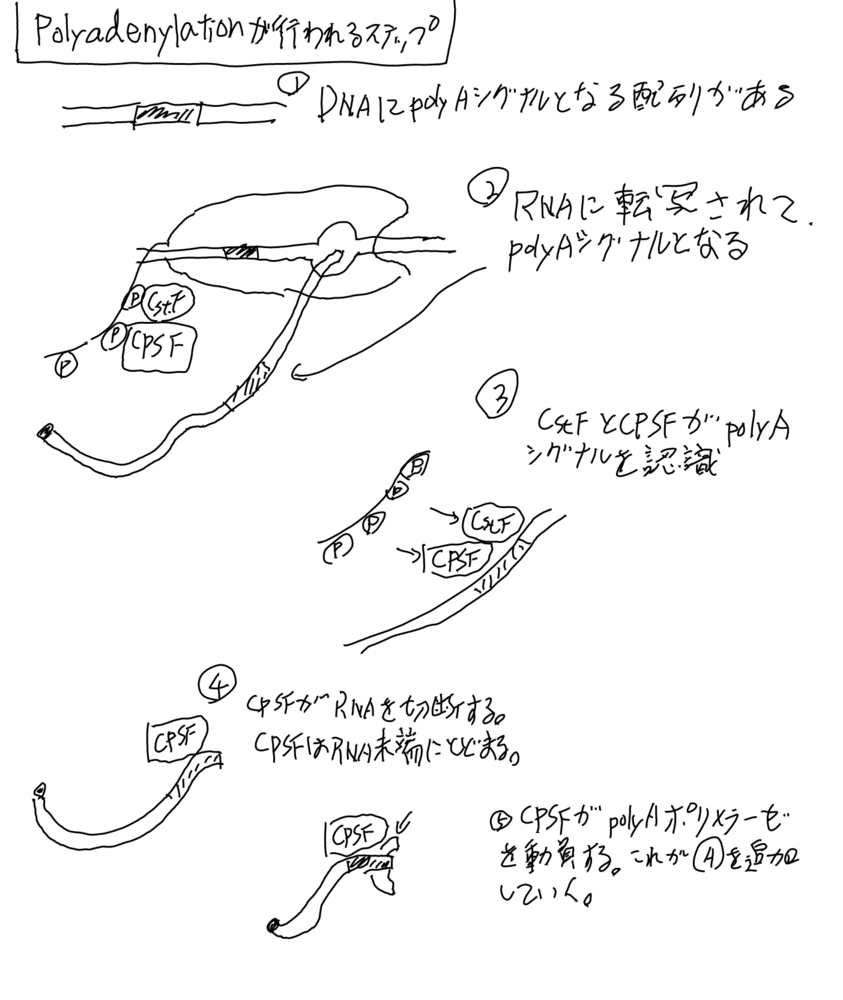 Polyadenylationが行われるステップ
① DNAにpolyAシグナルとなる配列がある
② RNAに転写されて、
polyAシグナルとなる
P CstF
P CPSF
P
③
CstFとCPSFがpolyA
シグナルを認識
P
P
P
P
CstF
CPSF
④
CPSFがRNAを切断する。
CPSFはRNA末端にとどまる。
CPSF
CPSF
⑤ CPSFがpolyAポリメラーゼ
を動員する。これがAを追加
していく。